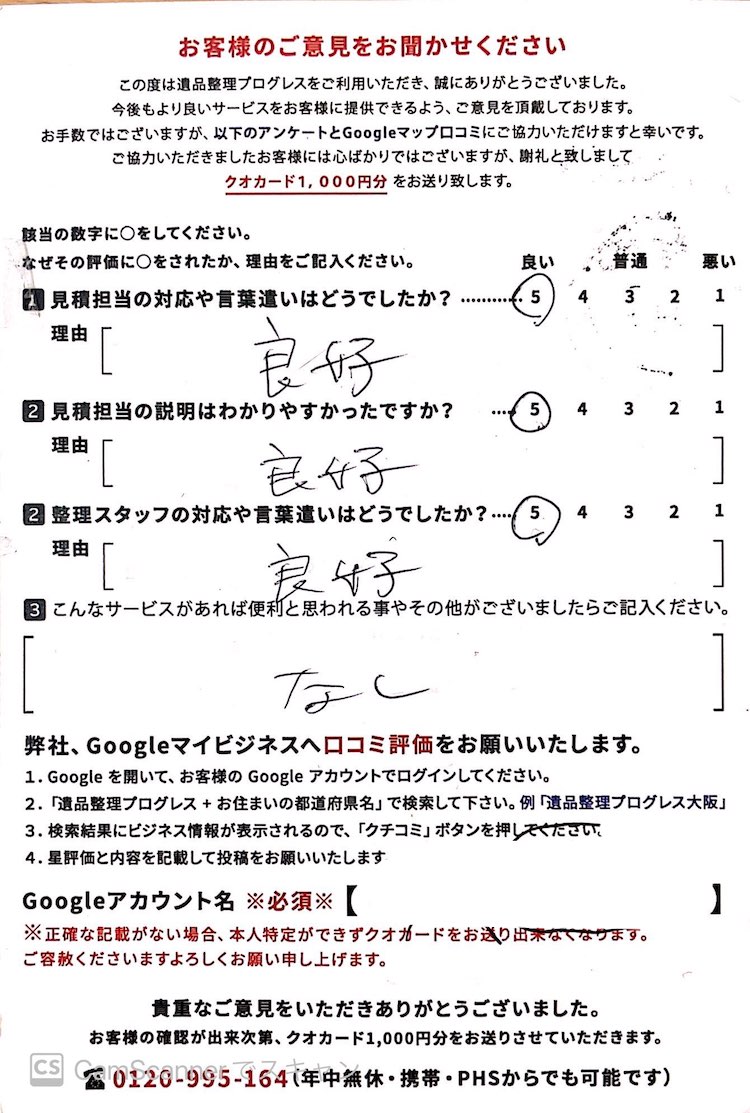 お客様のご意見をお聞かせください
この度は遺品整理プログレスをご利用いただき、誠にありがとうございました。
今後もより良いサービスをお客様に提供できるよう、ご意見を頂戴しております。
お手数ではございますが、以下のアンケートとGoogleマップ口コミにご協力いただけますと幸いです。
ご協力いただきましたお客様には心ばかりではございますが、謝礼と致しまして
クオカード1,000円分 をお送り致します。
該当の数字に〇をしてください。
なぜその評価に〇をされたか、理由をご記入ください。 良い 普通 悪い
1 見積担当の対応や言葉遣いはどうでしたか？ ............ 5 4 3 2 1
理由 [ 良好 ]
2 見積担当の説明はわかりやすかったですか？ .... 5 4 3 2 1
理由 [ 良好 ]
2 整理スタッフの対応や言葉遣いはどうでしたか？.... 5 4 3 2 1
理由 [ 良好 ]
3 こんなサービスがあれば便利と思われる事やその他がございましたらご記入ください。
[ なし ]
弊社、Googleマイビジネスへ口コミ評価をお願いいたします。
1. Google を開いて、お客様の Google アカウントでログインしてください。
2.「遺品整理プログレス + お住まいの都道府県名」で検索して下さい。例「遺品整理プログレス大阪」
3. 検索結果にビジネス情報が表示されるので、「クチコミ」ボタンを押してください。
4. 星評価と内容を記載して投稿をお願いいたします
Googleアカウント名 ※必須※【 】
※正確な記載がない場合、本人特定ができずクオカードをお送り出来なくなります。
ご容赦くださいますよろしくお願い申し上げます。
貴重なご意見をいただきありがとうございました。
お客様の確認が出来次第、クオカード1,000円分をお送りさせていただきます。
CS CamScanner でスキャン
☎0120-995-164(年中無休・携帯・PHSからでも可能です)